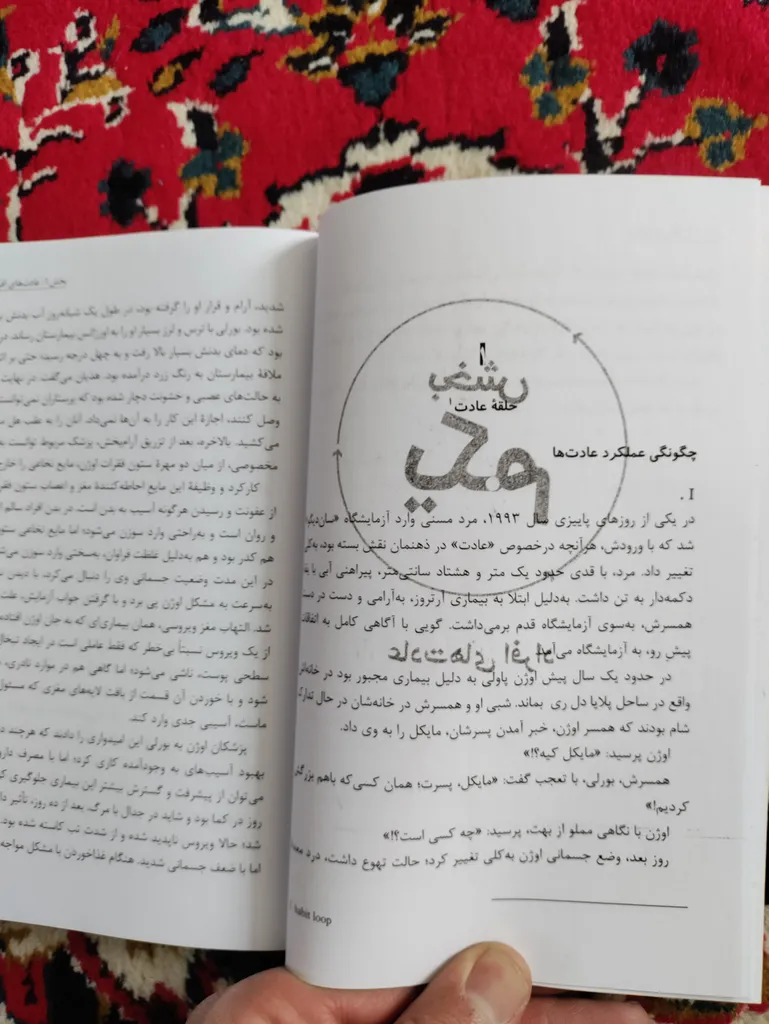 ۱
حلقهٔ عادت۱
چگونگی عملکرد عادت‌ها
I .
در یکی از روزهای پاییزی سال ۱۹۹۳، مرد مسنی وارد آزمایشگاه
شد که با ورودش، هرآنچه درخصوص «عادت» در ذهنمان نقش بسته بود، به‌کلی
تغییر داد. مرد، با قدی حدود یک متر و هشتاد سانتی‌متر، پیراهنی آبی با
دکمه‌دار به تن داشت. به‌دلیل ابتلا به بیماری آرتروز، به‌آرامی و دست در دست
همسرش، به‌سوی آزمایشگاه قدم برمی‌داشت. گویی با آگاهی کامل به اتفاقات
پیش رو، به آزمایشگاه می‌آمد.
در حدود یک سال پیش اوژن پاولی به دلیل بیماری مجبور بود در خانه‌اش
واقع در ساحل پلایا دل ری بماند. شبی او و همسرش در خانه‌شان در حال تدارک
شام بودند که همسر اوژن، خبر آمدن پسرشان، مایکل را به وی داد.
اوژن پرسید: «مایکل کیه؟!»
همسرش، بورلی، با تعجب گفت: «مایکل، پسرت؛ همان کسی‌که باهم بزرگش
کردیم!»
اوژن با نگاهی مملو از بهت، پرسید: «چه کسی است؟!»
روز بعد، وضع جسمانی اوژن به‌کلی تغییر کرد؛ حالت تهوع داشت، درد
habit loop
بخش
یکم
عادت‌های افراد
بخش ۱: عادت‌های
شدید، آرام و قرار او را گرفته بود، در طول یک شبانه‌روز آب بدنش
شده بود. بورلی با ترس و لرز بسیار او را به اورژانس بیمارستان رساند.
بود که دمای بدنش بسیار بالا رفت و به چهل درجه رسید؛ حتی بر اثر
ملافهٔ بیمارستان به رنگ زرد درآمده بود. هذیان می‌گفت. در نهایت
به حالت‌های عصبی و خشونت دچار شده بود که پرستاران نمی‌توانستند
وصل کنند، اجازهٔ این کار را به آن‌ها نمی‌داد. آنان را به عقب هل
می‌کشید. بالاخره، بعد از تزریق آرام‌بخش، پزشک مربوط توانست
مخصوصی، از میان دو مهرهٔ ستون فقرات اوژن، مایع نخاعی را خارج
کارکرد و وظیفهٔ این مایع احاطه‌کنندهٔ مغز و اعصاب ستون
از عفونت و رسیدن هرگونه آسیب به بدن است. در بدن افراد سالم
و روان است و به‌راحتی وارد سوزن می‌شود؛ اما مایع نخاعی
هم کدر بود و هم به‌دلیل غلظت فراوان، به‌سختی وارد سوزن
در این مدت وضعیت جسمانی وی را دنبال می‌کرد، با دیدن
به‌سرعت به مشکل اوژن پی برد و با گرفتن جواب آزمایش، علت
شد. التهاب مغز ویروسی، همان بیماری‌ای که به جان اوژن افتاده
از یک ویروس نسبتاً بی‌خطر که فقط عاملی است در ایجاد تبخال
سطحی پوست، ناشی می‌شود؛ اما گاهی هم در موارد نادری،
شود و با خوردن آن قسمت از بافت لایه‌های مغزی که مسئول
ماست، آسیبی جدی وارد کند.
پزشکان اوژن به بورلی این امیدواری را دادند که هرچند
بهبود آسیب‌های به وجودآمده کاری کرد؛ اما با مصرف
می‌توان از پیشرفت و گسترش بیشتر این بیماری جلوگیری
روز در کما بود و شاید در جدال با مرگ. بعد از ده روز، تأثیر
شد؛ حالا ویروس ناپدید شده و از شدت تب کاسته شده بود.
اما با ضعف جسمانی شدید. هنگام غذاخوردن با مشکل مواجه